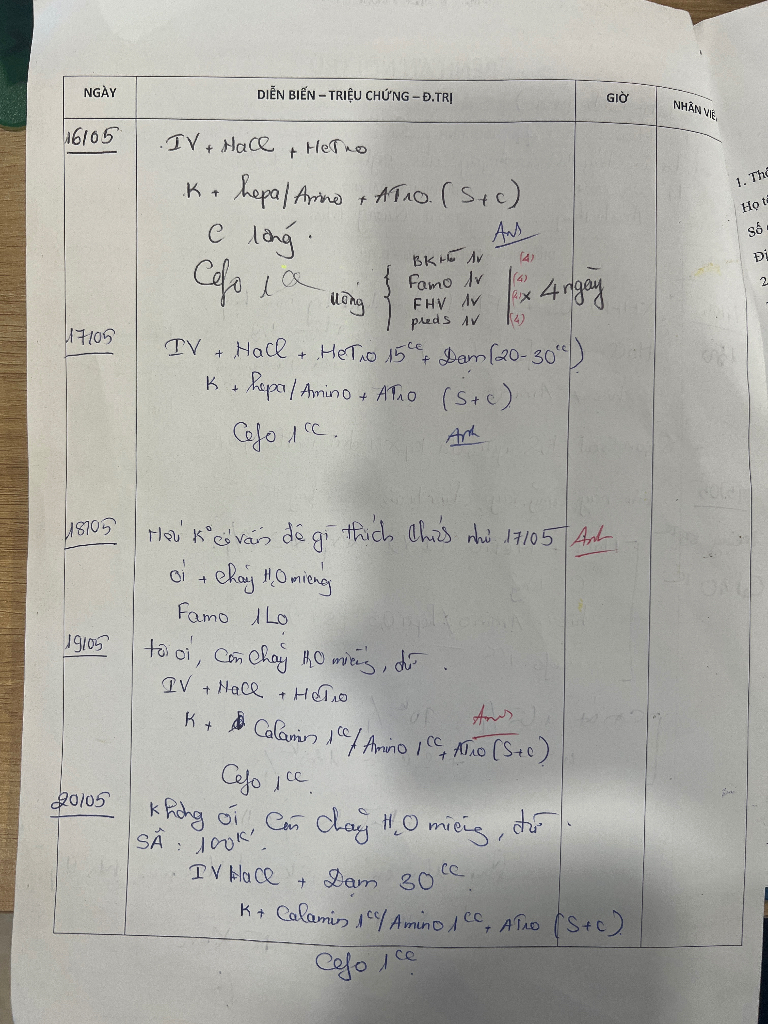 NGÀY DIỄN BIẾN – TRIỆU CHỨNG – Đ.TRỊ GIỜ NHÂN VIÊ
16/05
IV + NaCl + HeTzo
K + hepa/Amino + ATzo (S+C)
C lỏng. Anh
Cefo 1cc
uống
BK 1v (4)
Famo 1v (4)
FHV 1v (4)
preds 1v (4)
x 4 ngày
17/05
IV + NaCl + HeTzo 15cc + Đạm (20-30cc)
K + hepa/Amino + ATzo (S+C)
Cefo 1cc. Anh
18/05
K° có vấn đề gì thích 17/05 Anh
ói + chảy H2O miếng
Famo 1 Lọ
19/05
ói, còn chảy H2O miếng, đừ.
IV + NaCl + HeTzo
K + Calamin 1cc/Amino 1cc + ATzo (S+C) Anh
Cefo 1cc
20/05
Không ói, còn chảy H2O miếng, đừ.
SÂ : 100K
IV NaCl + Đạm 30cc
K + Calamin 1cc/Amino 1cc + ATzo (S+C)
Cefo 1cc
1. Thô
Họ tê
Số
Đị
2